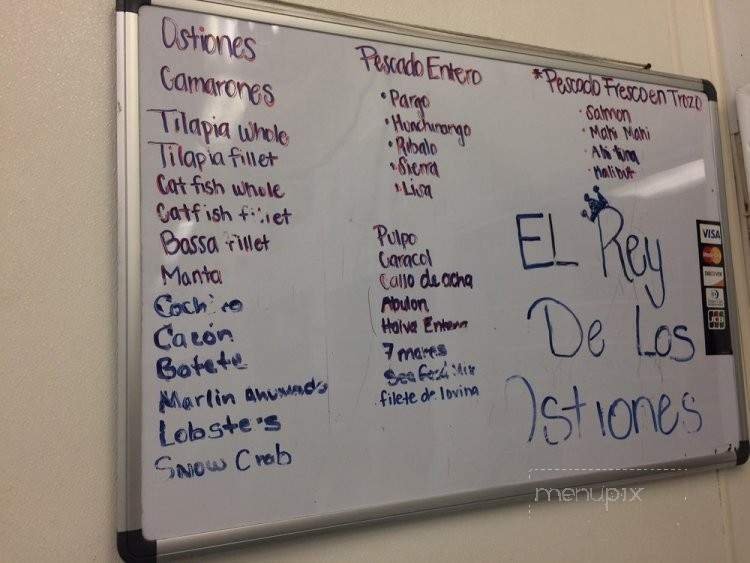 Ostiones
Camarones
Tilapia Whole
Tilapia fillet
Catfish whole
Catfish fillet
Bassa fillet
Manta
Cochito
Cazón
Botete
Marlin Ahumado
Lobste's
Snow Crab
Pescado Entero
• Pargo
• Hunchinango
• Robalo
• Sierra
• Lisa
Pulpo
Caracol
Callo de acha
Abulon
Haiva Entera
7 mares
filete de lovina
*Pescado Fresco en Trozo
· Salmon
· Mahi Mahi
· Ahi tuna
· Halibut
EL Rey
De Los
Ostiones
VISA
MasterCard
DISCOVER
JCB
menupix